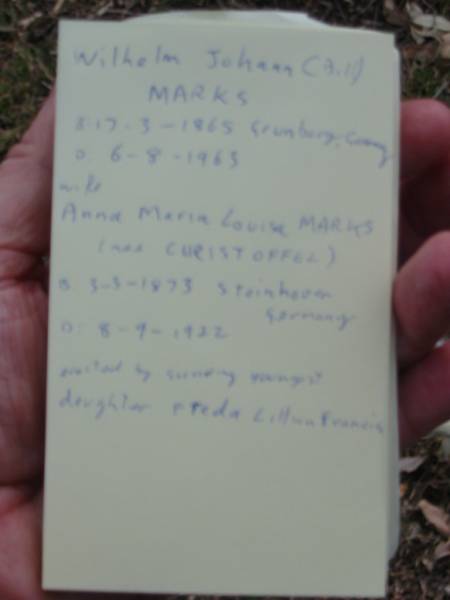 Wilhelm Johann (Bill)
MARKS
B. 17-3-1865 Grunberg, Germany
D. 6-8-1963
wife
Anna Maria Louise MARKS
(nee CHRISTOFFEL)
B 3-3-1873 Steinhoven
Germany
D. 8-9-1922
erected by surviving youngest
daughter Freda Lillian Francis